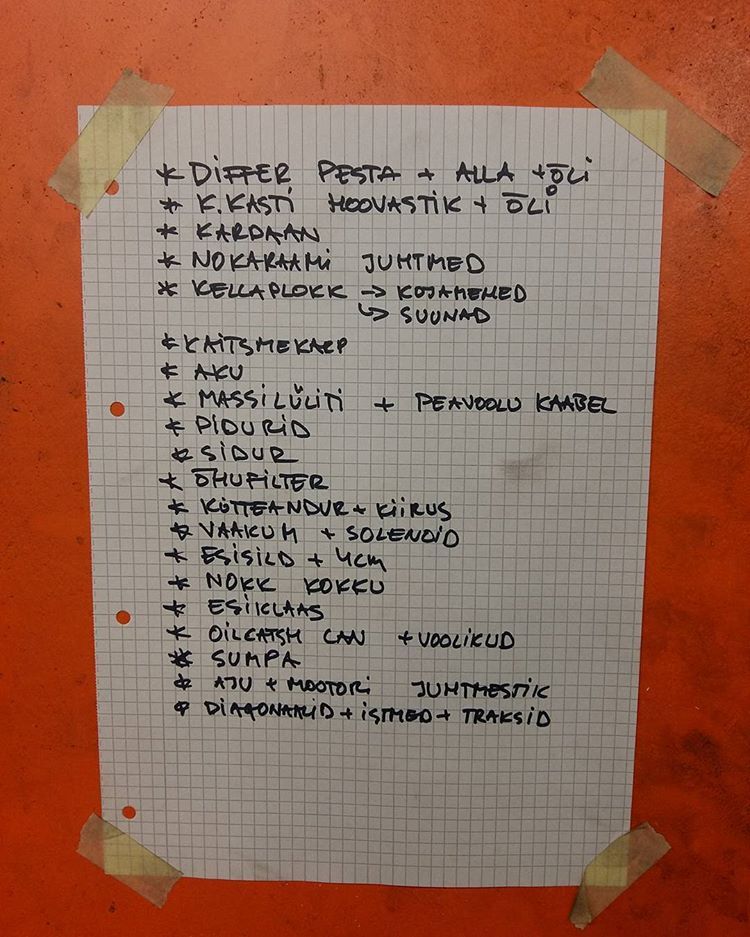 * DIFFER PESTA + ALLA + ÕLI
* K.KASTI HOOVASTIK + ÕLI
* KARDAAN
* NOKARAAMI JUHTMED
* KELLAPLOKK → KOJAMEHED
↳ SUUNAD
* KAITSMEKARP
* AKU
* MASSILÜLITI + PEAVOOLU KAABEL
* PIDURID
* SIDUR
* ÕHUFILTER
* KÜTTEANDUR + KIIRUS
* VAAKUM + SOLENOID
* ESISILD + 4CM
* NOKK KOKKU
* ESIKLAAS
* OILCATSH CAN + VOOLIKUD
* SUMPA
* AJU + MOOTORI JUHTMESTIK
* DIAGONAALID + ISTMED + TRAKSID